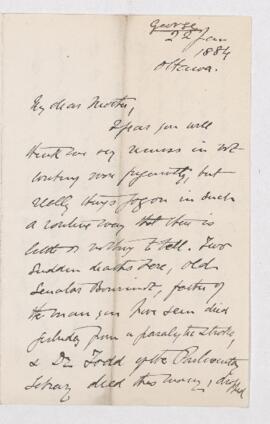 George
22 Jan
1884
Ottawa.
My dear Mother,
I fear you will
think me very remiss in not
writing more frequently, but
really things jog on in such
a routine way that there is
little or nothing to tell. Two
sudden deaths here, old
Senator Bourinot, father of
the man you have seen died
yesterday from a paralytic stroke,
& Dr Todd of the Parliamentary
Library died this morning, dropped